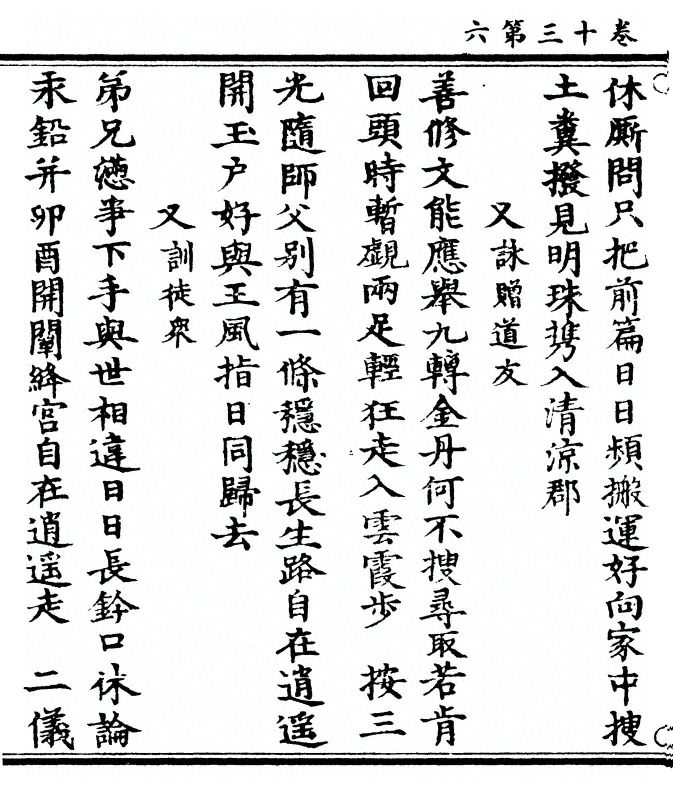 卷十三第六
休厮問只把前篇日日頻搬運好向家中搜
土糞撥見明珠携入清涼郡
又詠贈道友
善修文能應舉九轉金丹何不搜尋取若肯
回頭時暫觀兩足輕狂走入雲霞步 按三
光隨師父别有一條穩穩長生路自在逍遥
開玉户好與玉風指日同歸去
又訓徒衆
弟兄懑事下手與世相違日日長鈐口休論
汞鉛并卯酉開闡絳宫自在逍遥走 二儀